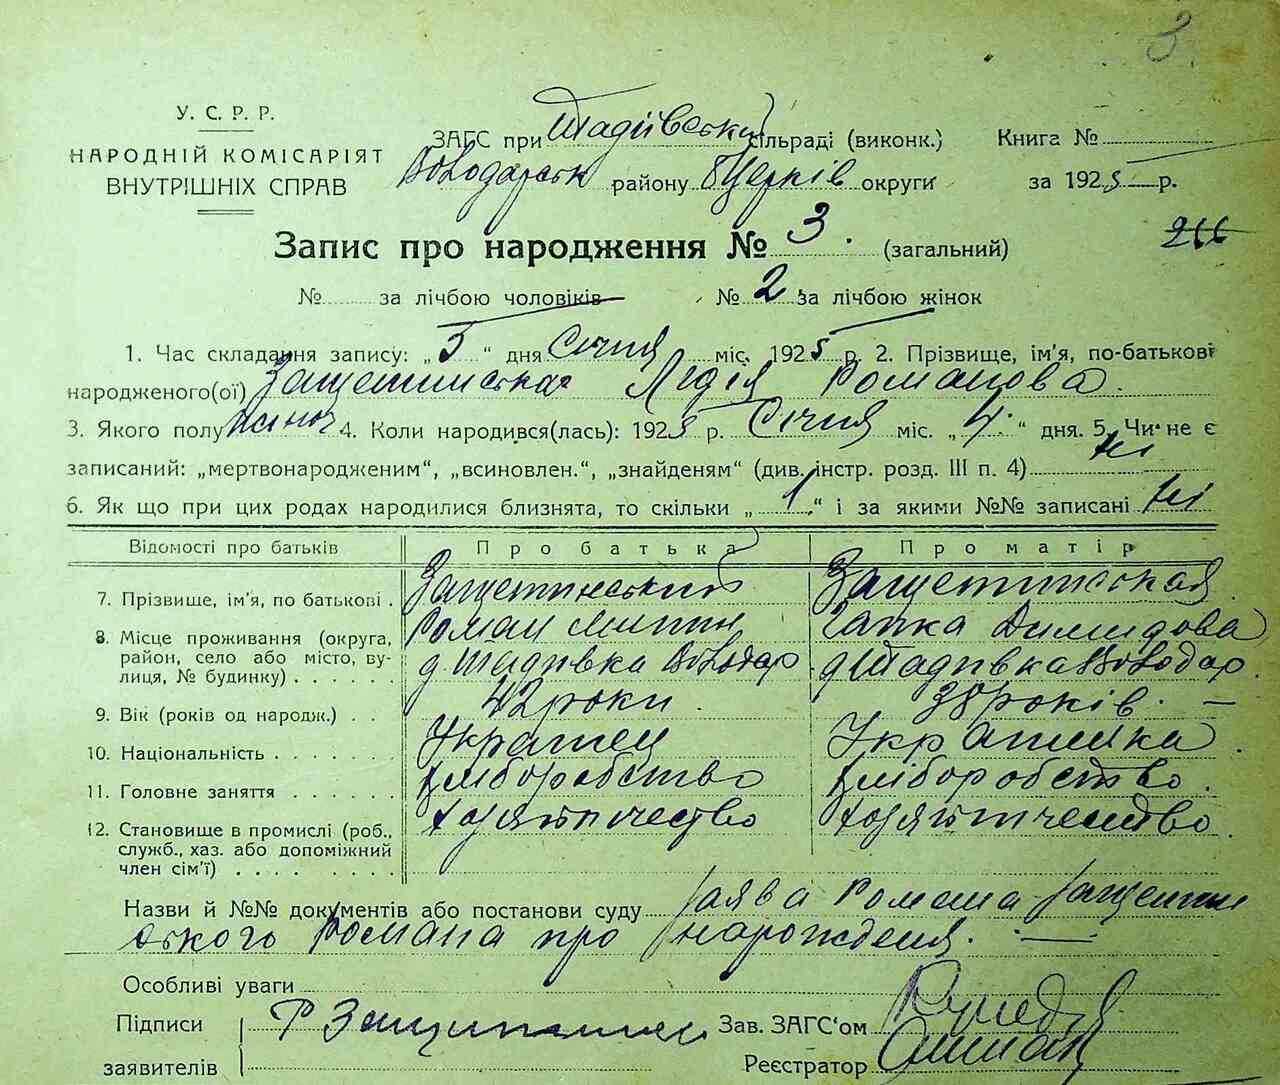 3
У. С. Р. Р.
НАРОДНІЙ КОМІСАРІЯТ
ВНУТРІШНІХ СПРАВ
ЗАГС при Тадіївській сільраді (виконк.)
Володарськ району БЦерків округи
Книга №
за 1925 р.
Запис про народження № 3. (загальний)
266
№ за лічбою чоловіків № 2 за лічбою жінок
1. Час складання запису: „5“ дня Січня міс. 1925 р. 2. Прізвище, ім'я, по-батькові
народженого(ої) Защетинская Лідія Романова.
3. Якого полу жіноч 4. Коли народився(лась): 1925 р. Січня міс. „4.“ дня. 5. Чи не є
записаний: „мертвонародженим“, „всиновлен.“, „знайденям“ (див. інстр. розд. III п. 4) ні
6. Як що при цих родах народилися близнята, то скільки „1“ і за якими №№ записані ні
Відомості про батьків Про батька Про матір
7. Прізвище, ім'я, по батькові . Защетинський Защетинская
Роман Гапка Димидова
8. Місце проживання (округа, район, село або місто, вулиця, № будинку) . . . . . . д. Тадівка Володар д Тадівка Володар.
9. Вік (років од народж.) . . 42 роки. 38 років. —
10. Національність . . . . . . . Українец Українка.
11. Головне заняття . . . . . . хліборобство хлібор обство.
12. Становище в промислі (роб., служб., хаз. або допоміжний член сім'ї) . . . . . . . .
Назви й №№ документів або постанови суду заява Романа Защетин
ського Романа про нарождения. —
Особливі уваги
Підписи
заявителів
Р Защитинський
Зав. ЗАГС'ом
Реєстратор